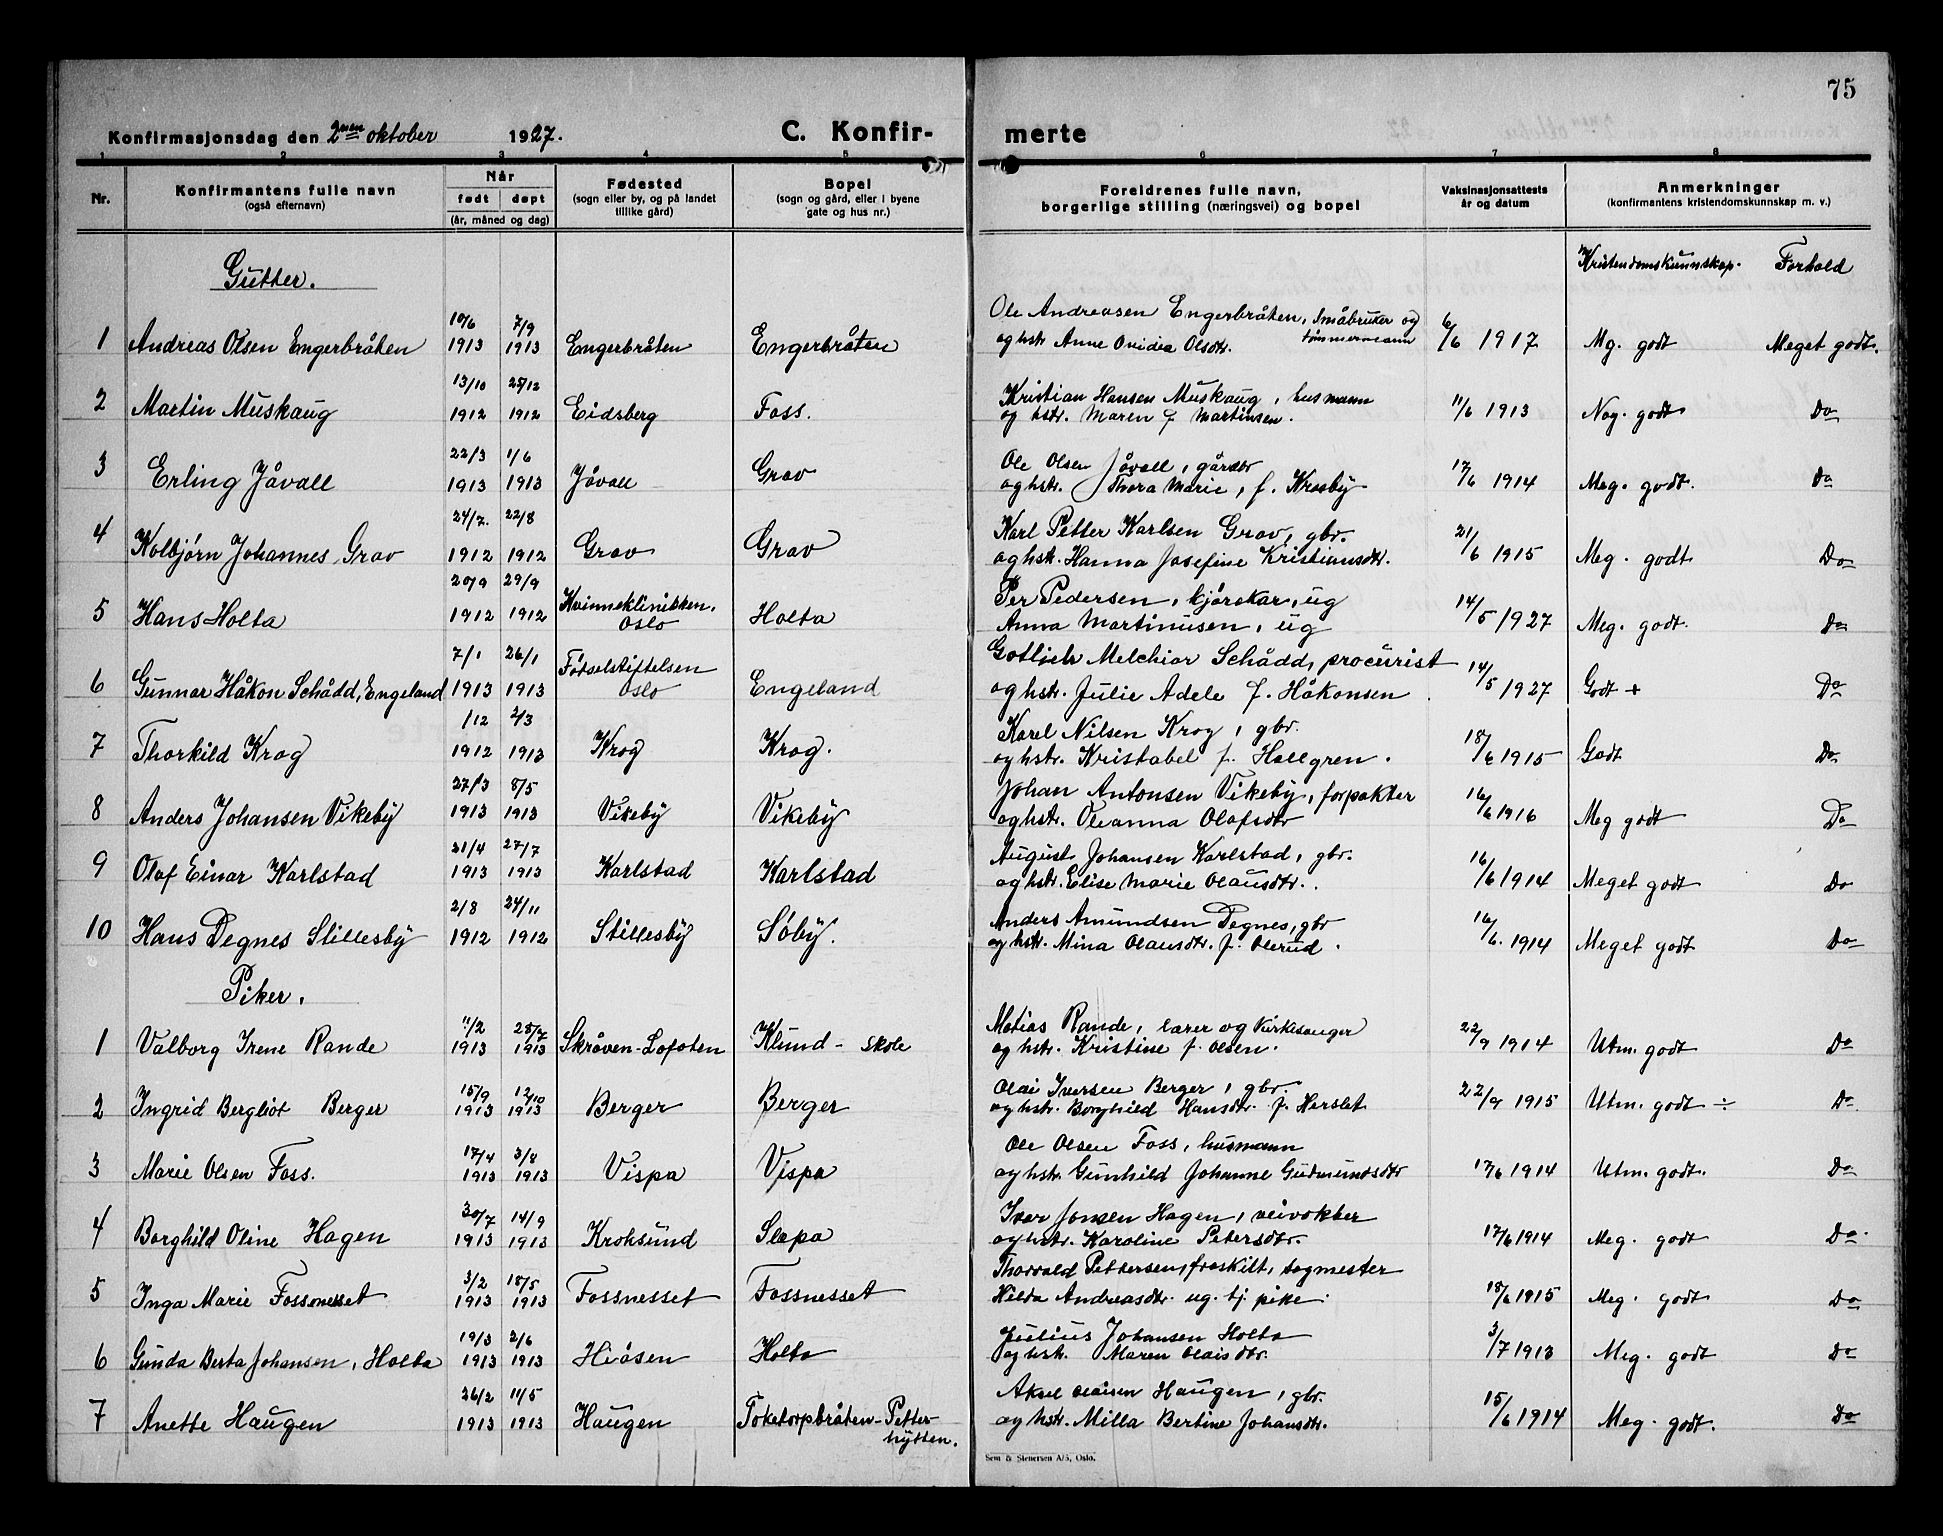 75
Konfirmasjonsdag den 2nen oktober 1927. C. Konfir- merte
1 2 3 4 5 6 7 8
Nr. Konfirmantens fulle navn (også efternavn) Når født døpt (år, måned og dag) Fødested (sogn eller by, og på landet tillike gård) Bopel (sogn og gård, eller i byene gate og hus nr.) Foreldrenes fulle navn, borgerlige stilling (næringsvei) og bopel Vaksinasjonsattests år og datum Anmerkninger (konfirmantens kristendomskunnskap m. v.)
Gutter. Kristendomskunnskap. Forhold
10/6 7/9 Ole Andreasen Engerbråten, småbruker og
1 Andreas Olsen Engerbråten 1913 1913 Engerbråten Engerbråten og hstr Anne Ovidea Olsdtr. tømmermann 6/6 1917 Mg. godt Meget godt.
13/10 25/12 Kristian Hansen Muskaug, husmann
2 Martin Muskaug 1912 1912 Eidsberg Foss. og hstr. Maren f Martinsen. 11/6 1913 Nog. godt Do
22/3 1/6 Ole Olsen Jåvall, gårdbr
3 Erling Jåvall 1913 1913 Jåvall Grav og hstr. Thora Marie, f. Krosby 17/6 1914 Meg. godt. Do
24/7. 22/8 Karl Petter Karlsen Grav, gbr.
4 Kolbjørn Johannes Grav 1912 1912 Grav Grav og hstr. Hanna Josefine Kristiansdtr. 21/6 1915 Meg. godt Do
20/9 29/9 Per Pedersen, kjørekar, ug
5 Hans Holta 1912 1912 Kvinneklinikken, Oslo Holta Anna Martinusen, ug 14/5 1927 Meg. godt. Do
7/1 26/1 Gotlieb Melchior Schådd, procurist
6 Gunnar Håkon Schådd, Engeland 1913 1913 Fødselstiftelsen Oslo Engeland og hstr. Julie Adele f. Håkonsen 14/5 1927 Godt + Do
/12 2/3 Karl Nilsen Krog, gbr.
7 Thorkild Krog 1912 1913 Krog Krog. og hstr. Kristabel f. Hallgren. 18/6 1915 Godt Do
27/3 8/5 Johan Antonsen Vikeby, forpakter
8 Anders Johansen Vikeby 1913 1913 Vikeby Vikeby og hstr. Oleanna Olafsdtr 16/6 1916 Meg godt Do
21/4 27/7 August Johansen Karlstad, gbr.
9 Olaf Einar Karlstad 1913 1913 Karlstad Karlstad og hstr. Elise Marie Olausdtr. 16/6 1914 Meget godt Do
2/8 24/11 Anders Amundsen Degnes, gbr
10 Hans Degnes Stillesby 1912 1912 Stillesby Søby. og hstr. Mina Olausdtr. f. Olerud. 16/6. 1914 Meget godt Do
Piker.
11/2 28/7 Matias Rande, lærer og kirkesanger
1 Valborg Irene Rande 1913 1913 Skråven-Lofoten Klund- skole og hstr. Kristine f. Olsen. 22/9 1914 Utm. godt Do
15/9 12/10 Olai Iversen Berger, gbr.
2 Ingrid Bergliot Berger 1913 1913 Berger Berger og hstr. Borghild Hansdtr. f. Herslet 22/9 1915 Utm. godt ÷ Do.
17/4 3/8 Ole Olsen Foss, husmann
3 Marie Olsen Foss. 1913 1913 Vispa Vispa og hstr. Gunhild Johanne Gudmundsdtr 17/6 1914 Utm. godt. Do
30/7 14/9 Ivar Jonsen Hagen, veivokter
4 Borghild Oline Hagen 1913 1913 Kroksund Slepa og hstr. Karoline Petersdtr. 17/6 1914 Meg. godt Do.
3/2 18/5 Thorvald Pettersen, fraskilt, sagmester
5 Inga Marie Fossnesset 1913 1913 Fossnesset Fossnesset Hilda Andreasdtr. ug. tj. pike. 18/6 1915 Meg. godt Do
19/3 2/6 Julius Johansen Holta
6 Gunda Berta Johansen, Holta 1913 1913 Hiåsen Holta og hstr. Maren Olaisdtr. 3/7 1913 Meg. godt Do
26/2 11/5 Aksel Olaisen Haugen, gbr.
7 Anette Haugen 1913 1913 Haugen Toketorpbråten-Petterhytten. og hstr. Milla Bertine Johansdtr. 15/6 1914 Meg. godt. Do
Sem & Stenersen A/S, Oslo.